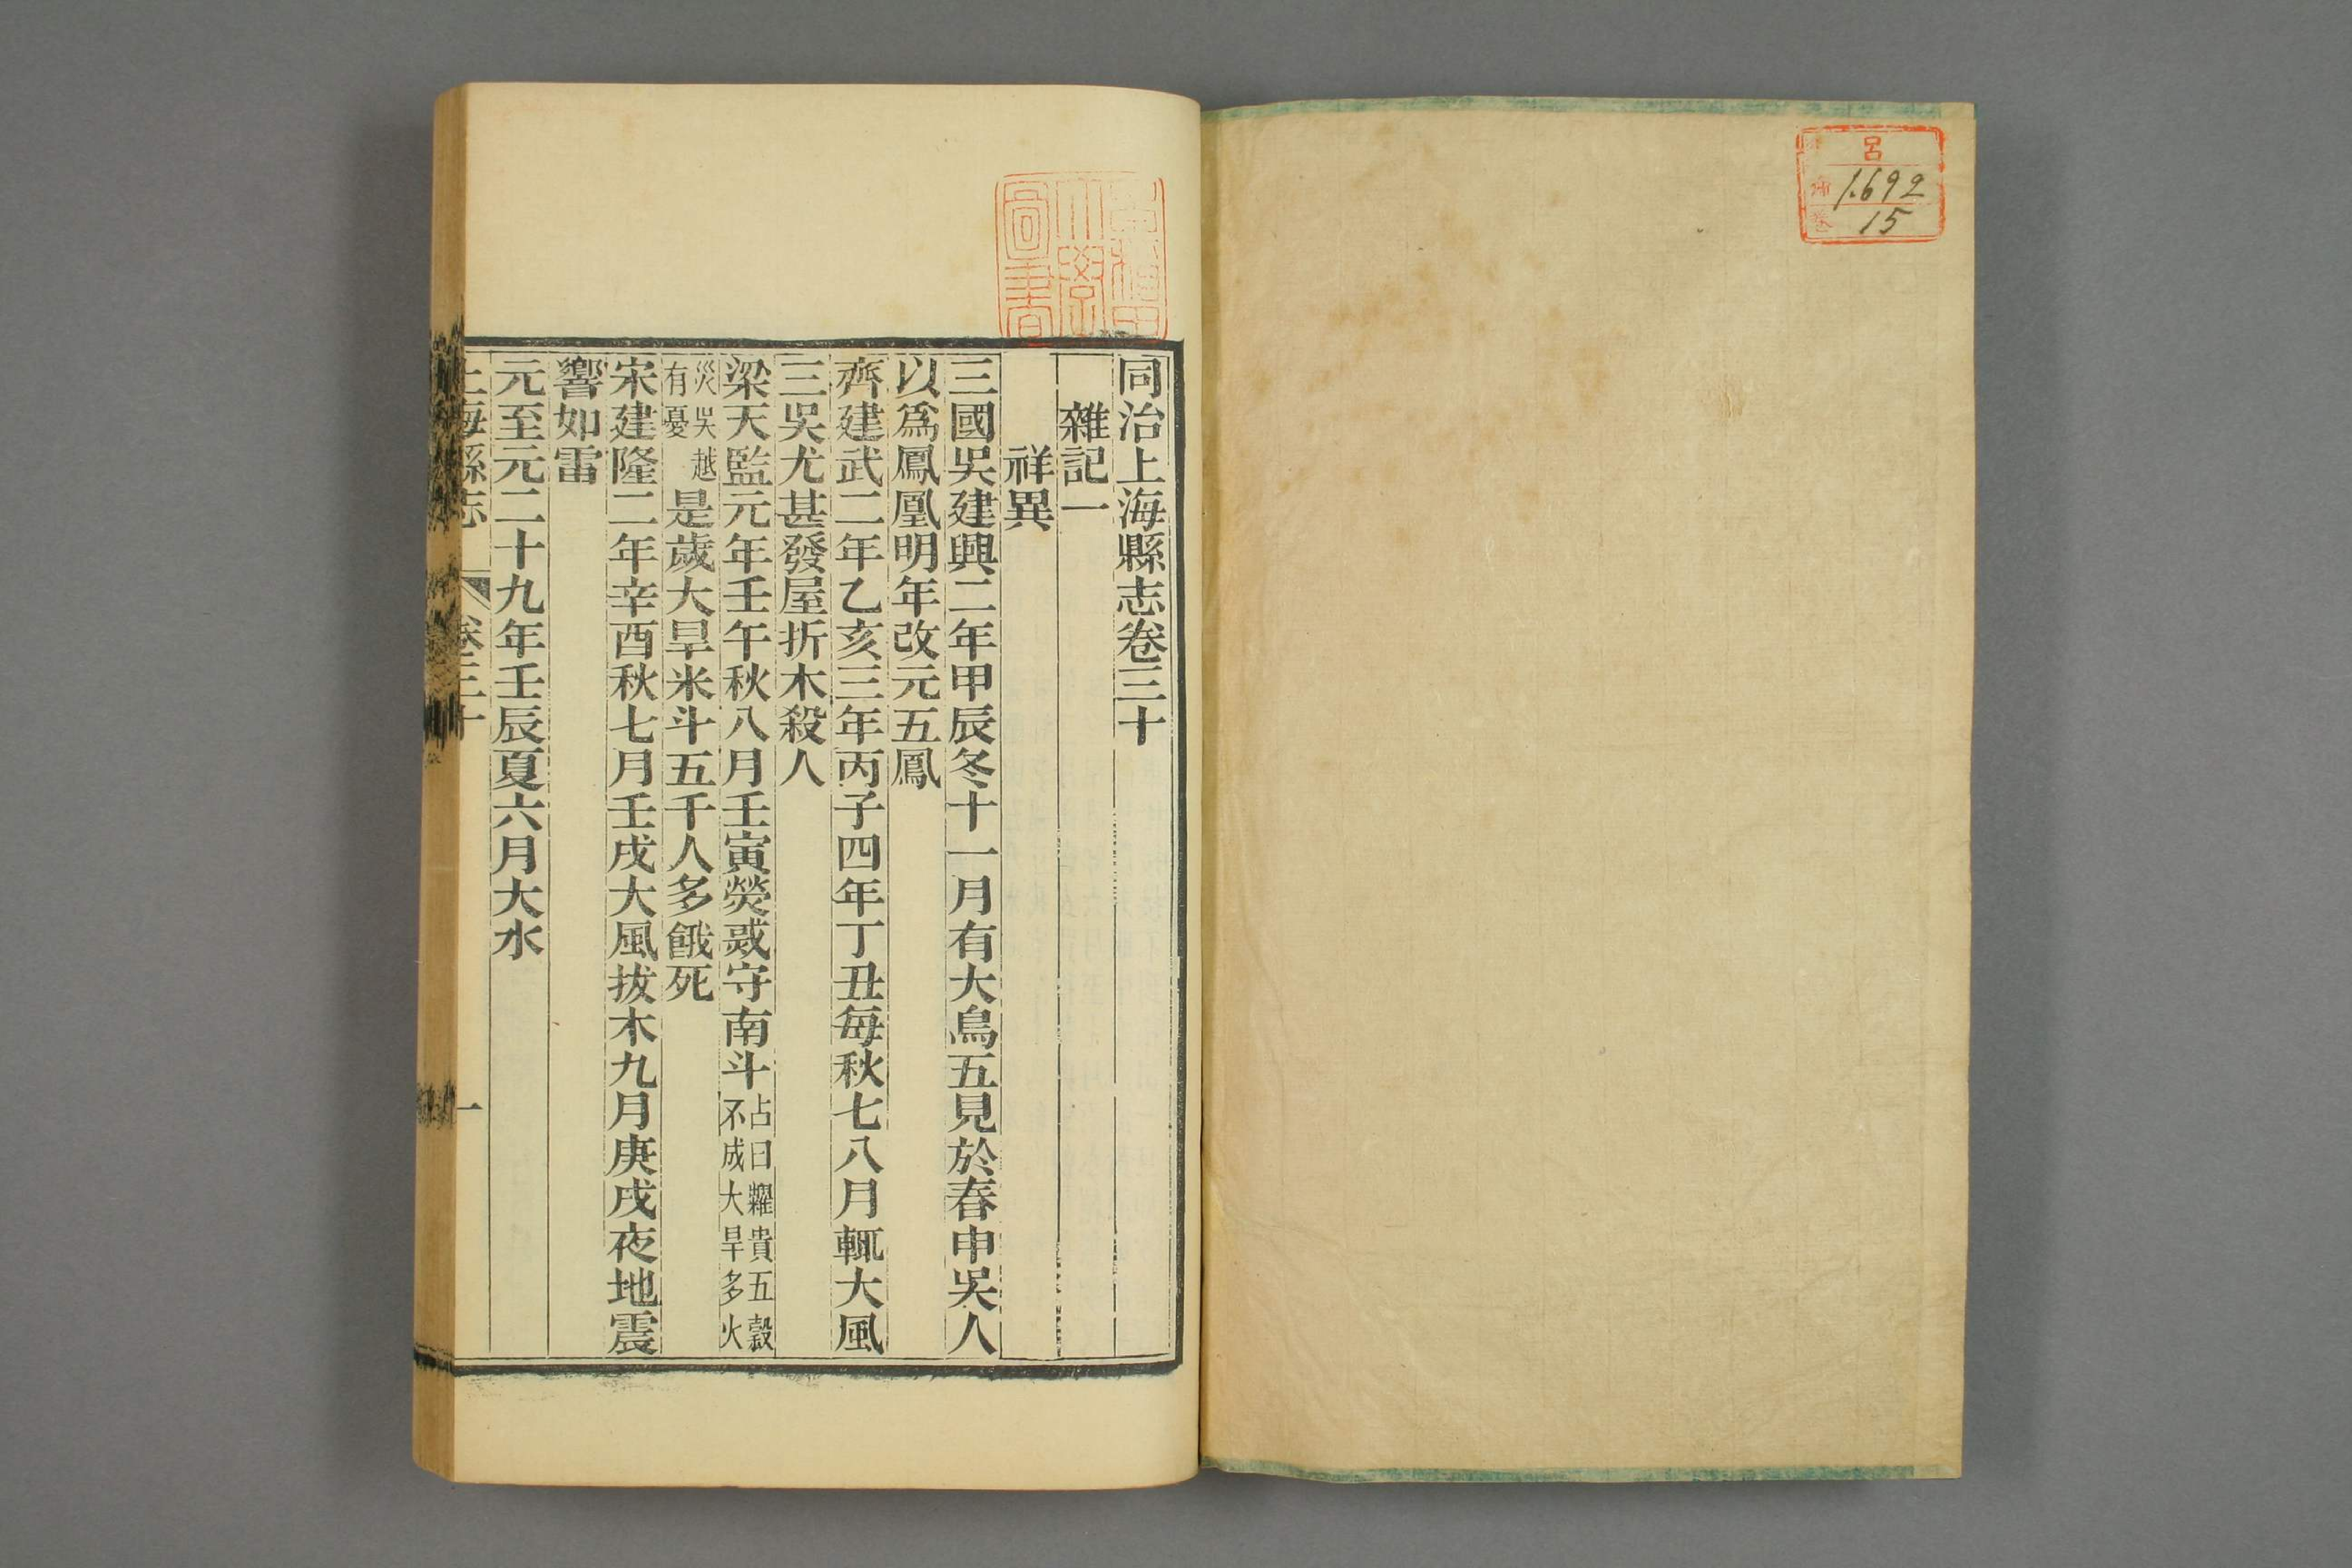 呂
1692
15
同治上海縣志卷三十
雜記一
祥異
三國吳建興二年甲辰冬十一月有大鳥五見於春申吳人
以爲鳳凰明年改元五鳳
齊建武二年乙亥三年丙子四年丁丑每秋七八月輒大風
三吳尤甚發屋折木殺人
梁天監元年壬午秋八月壬寅熒惑守南斗占曰糴貴五穀不成大旱多火
災吳越有憂是歲大旱米斗五千人多餓死
宋建隆二年辛酉秋七月壬戌大風拔木九月庚戌夜地震
響如雷
元至元二十九年壬辰夏六月大水
上海縣志 卷三十 一